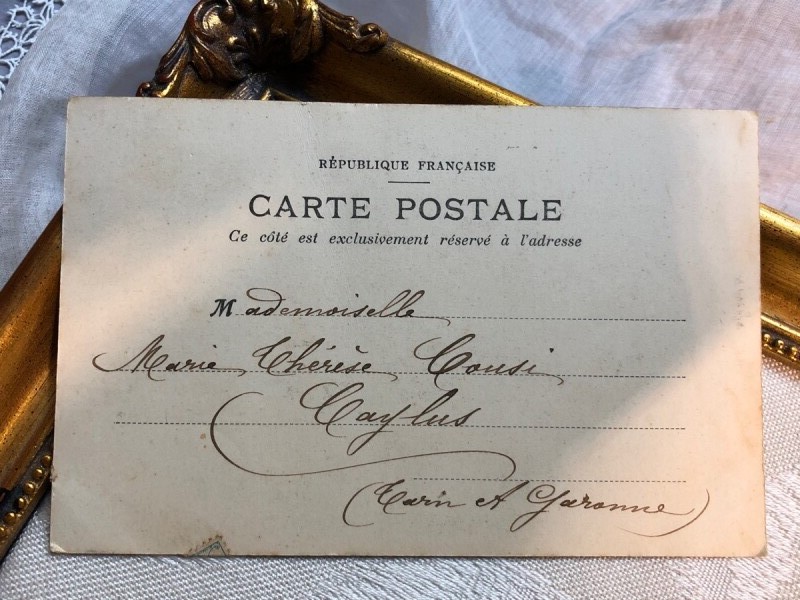 RÉPUBLIQUE FRANÇAISE
CARTE POSTALE
Ce côté est exclusivement réservé à l'adresse
Mademoiselle
Marie Thérèse Cousi
Caylus
(Tarn et Garonne)